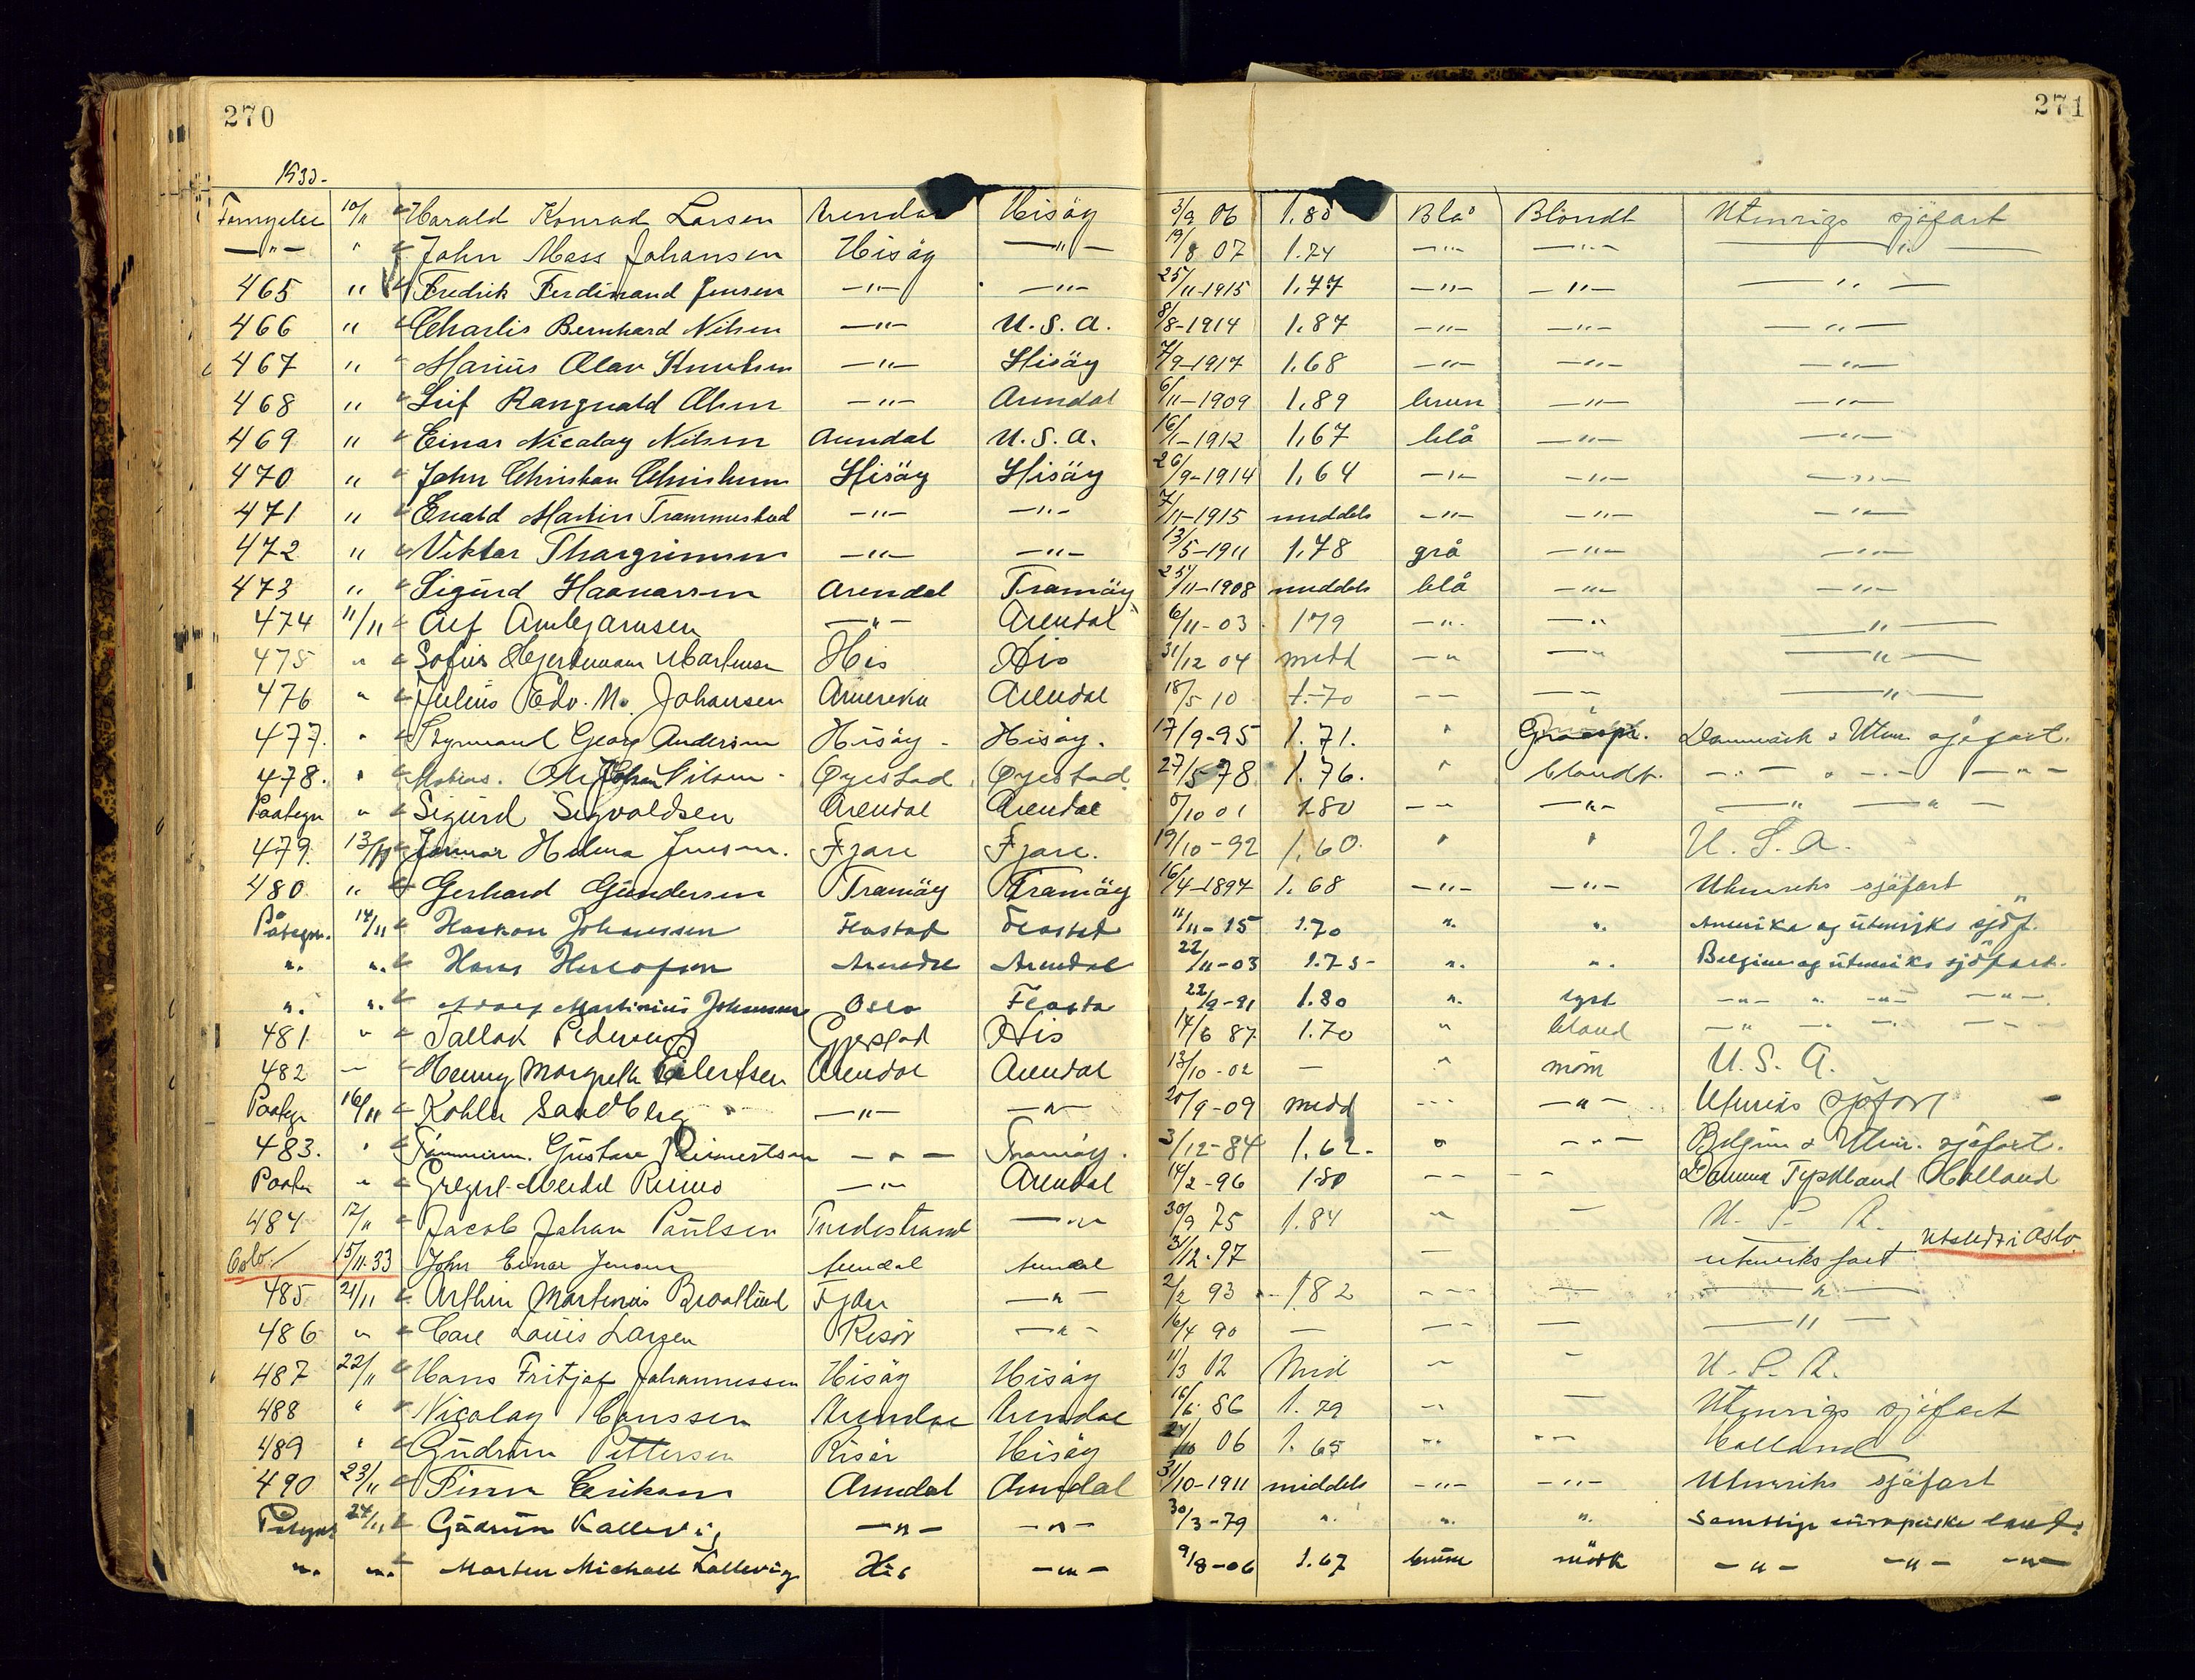 270
271
1933.
Fornyelse 10/11 Harald Konrad Larsen Arendal Hisöy 3/9 06 1.80 Blå Blondt Utenrigs sjöfart
—"— " John Mass Johansen Hisöy —"— 19/8 07 1.74 —"— —"— —"—
465 " Fredrik Ferdinand Jensen —"— —"— 25/11-1915 1,77 —"— —"— —"—
466 " Charlis Bernhard Nilsen —"— U.S.A. 8/8-1914 1,87 —"— —"— —"—
467 " Marius Olav Knutsen —"— Hisöy 7/9-1917 1,68 —"— —"— —"—
468 " Leif Rangvald Olsen —"— Arendal 6/11-1909 1,89 brun —"— —"—
469 " Einar Nicolay Nilsen Arendal U.S.A. 16/1-1912 1,67 blå —"— —"—
470 " John Christian Christensen Hisöy Hisöy 26/9-1914 1,64 —"— —"— —"—
471 " Evald Martin Trommestad —"— —"— 7/11-1915 middels —"— —"— —"—
472 " Viktor Thorgrimsen —"— —"— 13/5-1911 1,78 grå —"— —"—
473 " Sigurd Haavarsen Arendal Tromöy 25/11-1908 middels blå —"— —"—
474 11/11 Alf —"— Arendal 6/11-03 179 —"— —"— —"—
475 " Sofus Hjertmann Martinsen His His 31/12 04 medd —"— —"— —"—
476 " Julius Edv. M. Johansen Amerika Arendal 18/5 10 1.70 —— —— —"—
477. " Georg Andersen Hisöy. Hisöy. 17/9-95 1.71. " Gråspr. Danmark & Uten. sjöfart.
478. " Ole Johan Nilsen Öyestad Öyestad 27/5-78 1.76. " blondt. —"— " —"— —"—
Paategn " Sigurd Sigvaldsen Arendal Arendal 8/10 01 180 —— —"— —"— —"—
479. 13/11 Helma Jensen. Fjære Fjære. 19/10-92 1.60. " " U.S.A.
480 " Gerhard Gundersen Tromöy Tromöy 16/4-1897 1,68 —"— —"— Utenriks sjöfart "
Påtegn. 14/11 Haakon Johanssen Flostad Flostad 11/11-15 1.70 ". ". Amerika og utenriks sjöf.
". ". Hans Herlofsen Arendal Arendal 22/11-03 1.75- ". ". Belgien og utenriks sjöfart.
". ". Adolf Martinius Johansen Oslo Flosta 22/9-91 1.80 ". lyst —"— ". —"— —"—.
481 " Tallak Pedersen Gjerstad His 14/6 87 1.70 " blond —"— —"— —"—
482 — Henny Margreth Eilertsen Arendal Arendal 13/10-02 — " U.S.A.
Paategn 16/11 Kohler Sandberg —"— —"— 20/9-09 medd —"— —"— Utenriks sjöfart
483. " Gustav Reinertsen —"— Tromöy. 3/12-84 1.62. " —"— Belgien & Uten. sjöfart.
Paategn " Gregert Meidel Reiers —"— Arendal 14/2-96 180 —— —— Danm Tyskland Holland
484 17/11 Jacob Johan Paulsen Tvedestrand —"— 30/9 75 1.84 " — U.S.A.
Oslo 15/11-33 John Einar Jensen Arendal Arendal 31/12-97 — utenriks fart Utstedt i Oslo.
485 21/11 Arthur Martinius Fjære —"— 2/2 93 182 —"— — —"—
486 " Carl Louis Larsen Risör —"— 16/4 90 — —"— — —"—
487 22/11 Hans Fritjof Johannessen Hisöy Hisöy 11/3 02 Mid " — U.S.A.
488 " Nicolay Hanssen Arendal Arendal 16/6 86 1.79 " — Utenrigs sjöfart
489 " Gudrun Pettersen Risör Hisöy 06 1.65 " —"— Holland
490 23/11 Finn Eriksen Arendal Arendal 31/10-1911 middels —"— —"— Utenriks sjöfart
Påtegn 24/11 Gudrun Kallevig —"— —"— 30/3-79 ". ". ". Samtlige europeiske land.
". ". Morten Michael Kallevig His —"— 9/8-06 1.67 brune mörk —"— —"— —"—